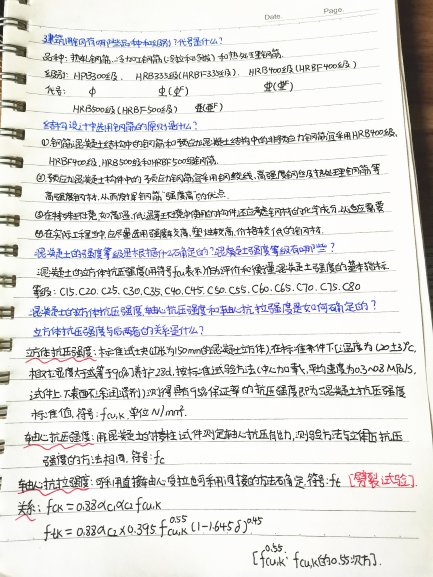 Date. Page.
建筑用钢有哪些品种和级别？代号是什么？
品种：热轧钢筋、冷加工钢筋(冷拉和冷拔)和热处理钢筋.
级别：HPB300级、HRB335级(HRBF335级)、HRB400级(HRBF400级)
代号： Φ Φ(Φ^F) Φ(Φ^F)
HRB500级(HRBF500级) Φ(Φ^F)
结构设计中选用钢筋的原则是什么？
①钢筋混凝土结构中的钢筋和预应力混凝土结构中的非预应力钢筋宜采用HRB400级、
HRBF400级、HRB500级和HRBF500级钢筋.
②预应力混凝土构件中的预应力钢筋宜采用钢绞线、高强度钢丝及热处理钢筋等
高强度钢材，从而发挥钢筋强度高的优点.
③在特殊环境如高温、低温环境中使用的构件还应考虑钢材的化学成分，以适应需要
④在实际工程当中，应尽量选用强度较高，塑性较高，价格较低的钢材.
混凝土的强度等级是根据什么确定的？混凝土强度等级有哪些？
混凝土的立方体抗压强度(用符号fcu表示)作为评价和衡量混凝土强度的基本指标
等级：C15、C20、C25、C30、C35、C40、C45、C50、C55、C60、C65、C70、C75、C80
混凝土的立方体抗压强度、轴心抗压强度和轴心抗拉强度是如何确定的？
立方体抗压强度与后两者的关系是什么？
立方体抗压强度：标准试块(边长为150mm的混凝土立方体)，在标准条件下(温度为(20±3)℃，
相对湿度大于或等于90%)养护28d，按标准试验方法(中心加载，平均速度为0.3~0.8MPa/s，
试件上下表面不涂润滑剂)测得具有95%保证率的抗压强度即为混凝土抗压强度
标准值，符号：fcu,k 单位N/mm².
轴心抗压强度：用混凝土的棱柱试件测定轴心抗压能力，测验方法与立方体抗压
强度的方法相同. 符号：fc
轴心抗拉强度：可利用直接轴心受拉也可采用间接的方法确定. 符号：ft [劈裂试验].
关系：fck=0.88αc1αc2fcu,k
ftk=0.88αc2×0.395f_cu,k^0.55(1-1.645δ)^0.45
[f_cu,k^0.55：fcu,k的0.55次方].